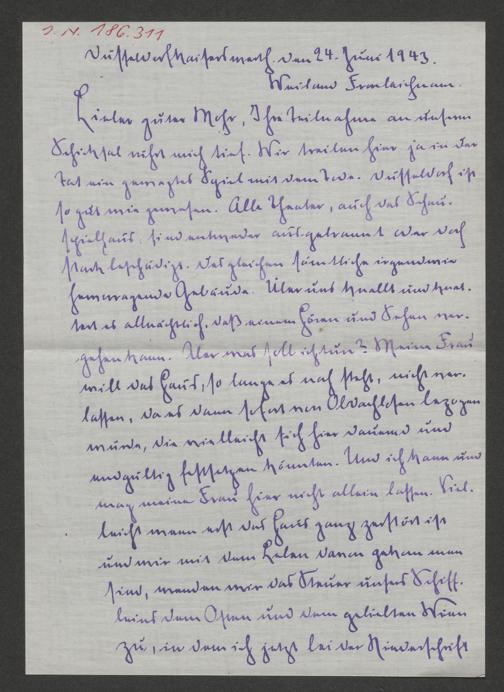 J. N. 186.311
Düsseldorf-Kaiserswerth, den 24. Juni 1943.
Weiland Fronleichnam.
Lieber guter Mohr, Ihre Teilnahme an unserm
Schicksal rührt mich tief. Wir treiben hier ja in der
Tat ein gewagtes Spiel mit dem Tode. Düsseldorf ist
so gut wie gewesen. Alle Theater, auch das Schau-
spielhaus, sind entweder ausgebrannt oder doch
stark beschädigt. Desgleichen sämtliche irgendwie
hervorragende Gebäude. Über uns knallt und knat-
tert es allnächtlich, daß einem Hören und Sehen ver-
gehen kann. Aber was soll ich tun? Meine Frau
will das Haus, so lange es noch steht, nicht ver-
lassen, da es dann sofort von Obdachlosen bezogen
würde, die vielleicht sich hier dauernd und
endgültig festsetzen könnten. Und ich kann und
mag meine Frau hier nicht allein lassen. Viel-
leicht wenn erst das Haus ganz zerstört ist
und wir mit dem Leben davon gekommen
sind, wenden wir das Steuer unsres Schiff-
leins dem Osten und dem geliebten Wien
zu, in dem ich jetzt bei der Niederschrift